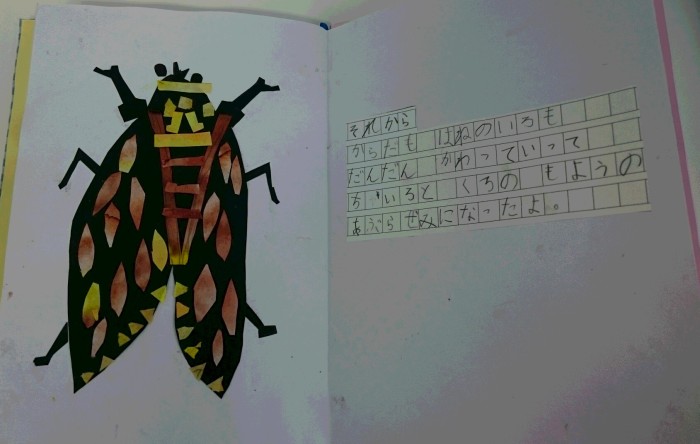 それから
からだも はねのいろも
だんだん かわっていって
ちゃいろと くろの もようの
あぶらぜみになったよ。